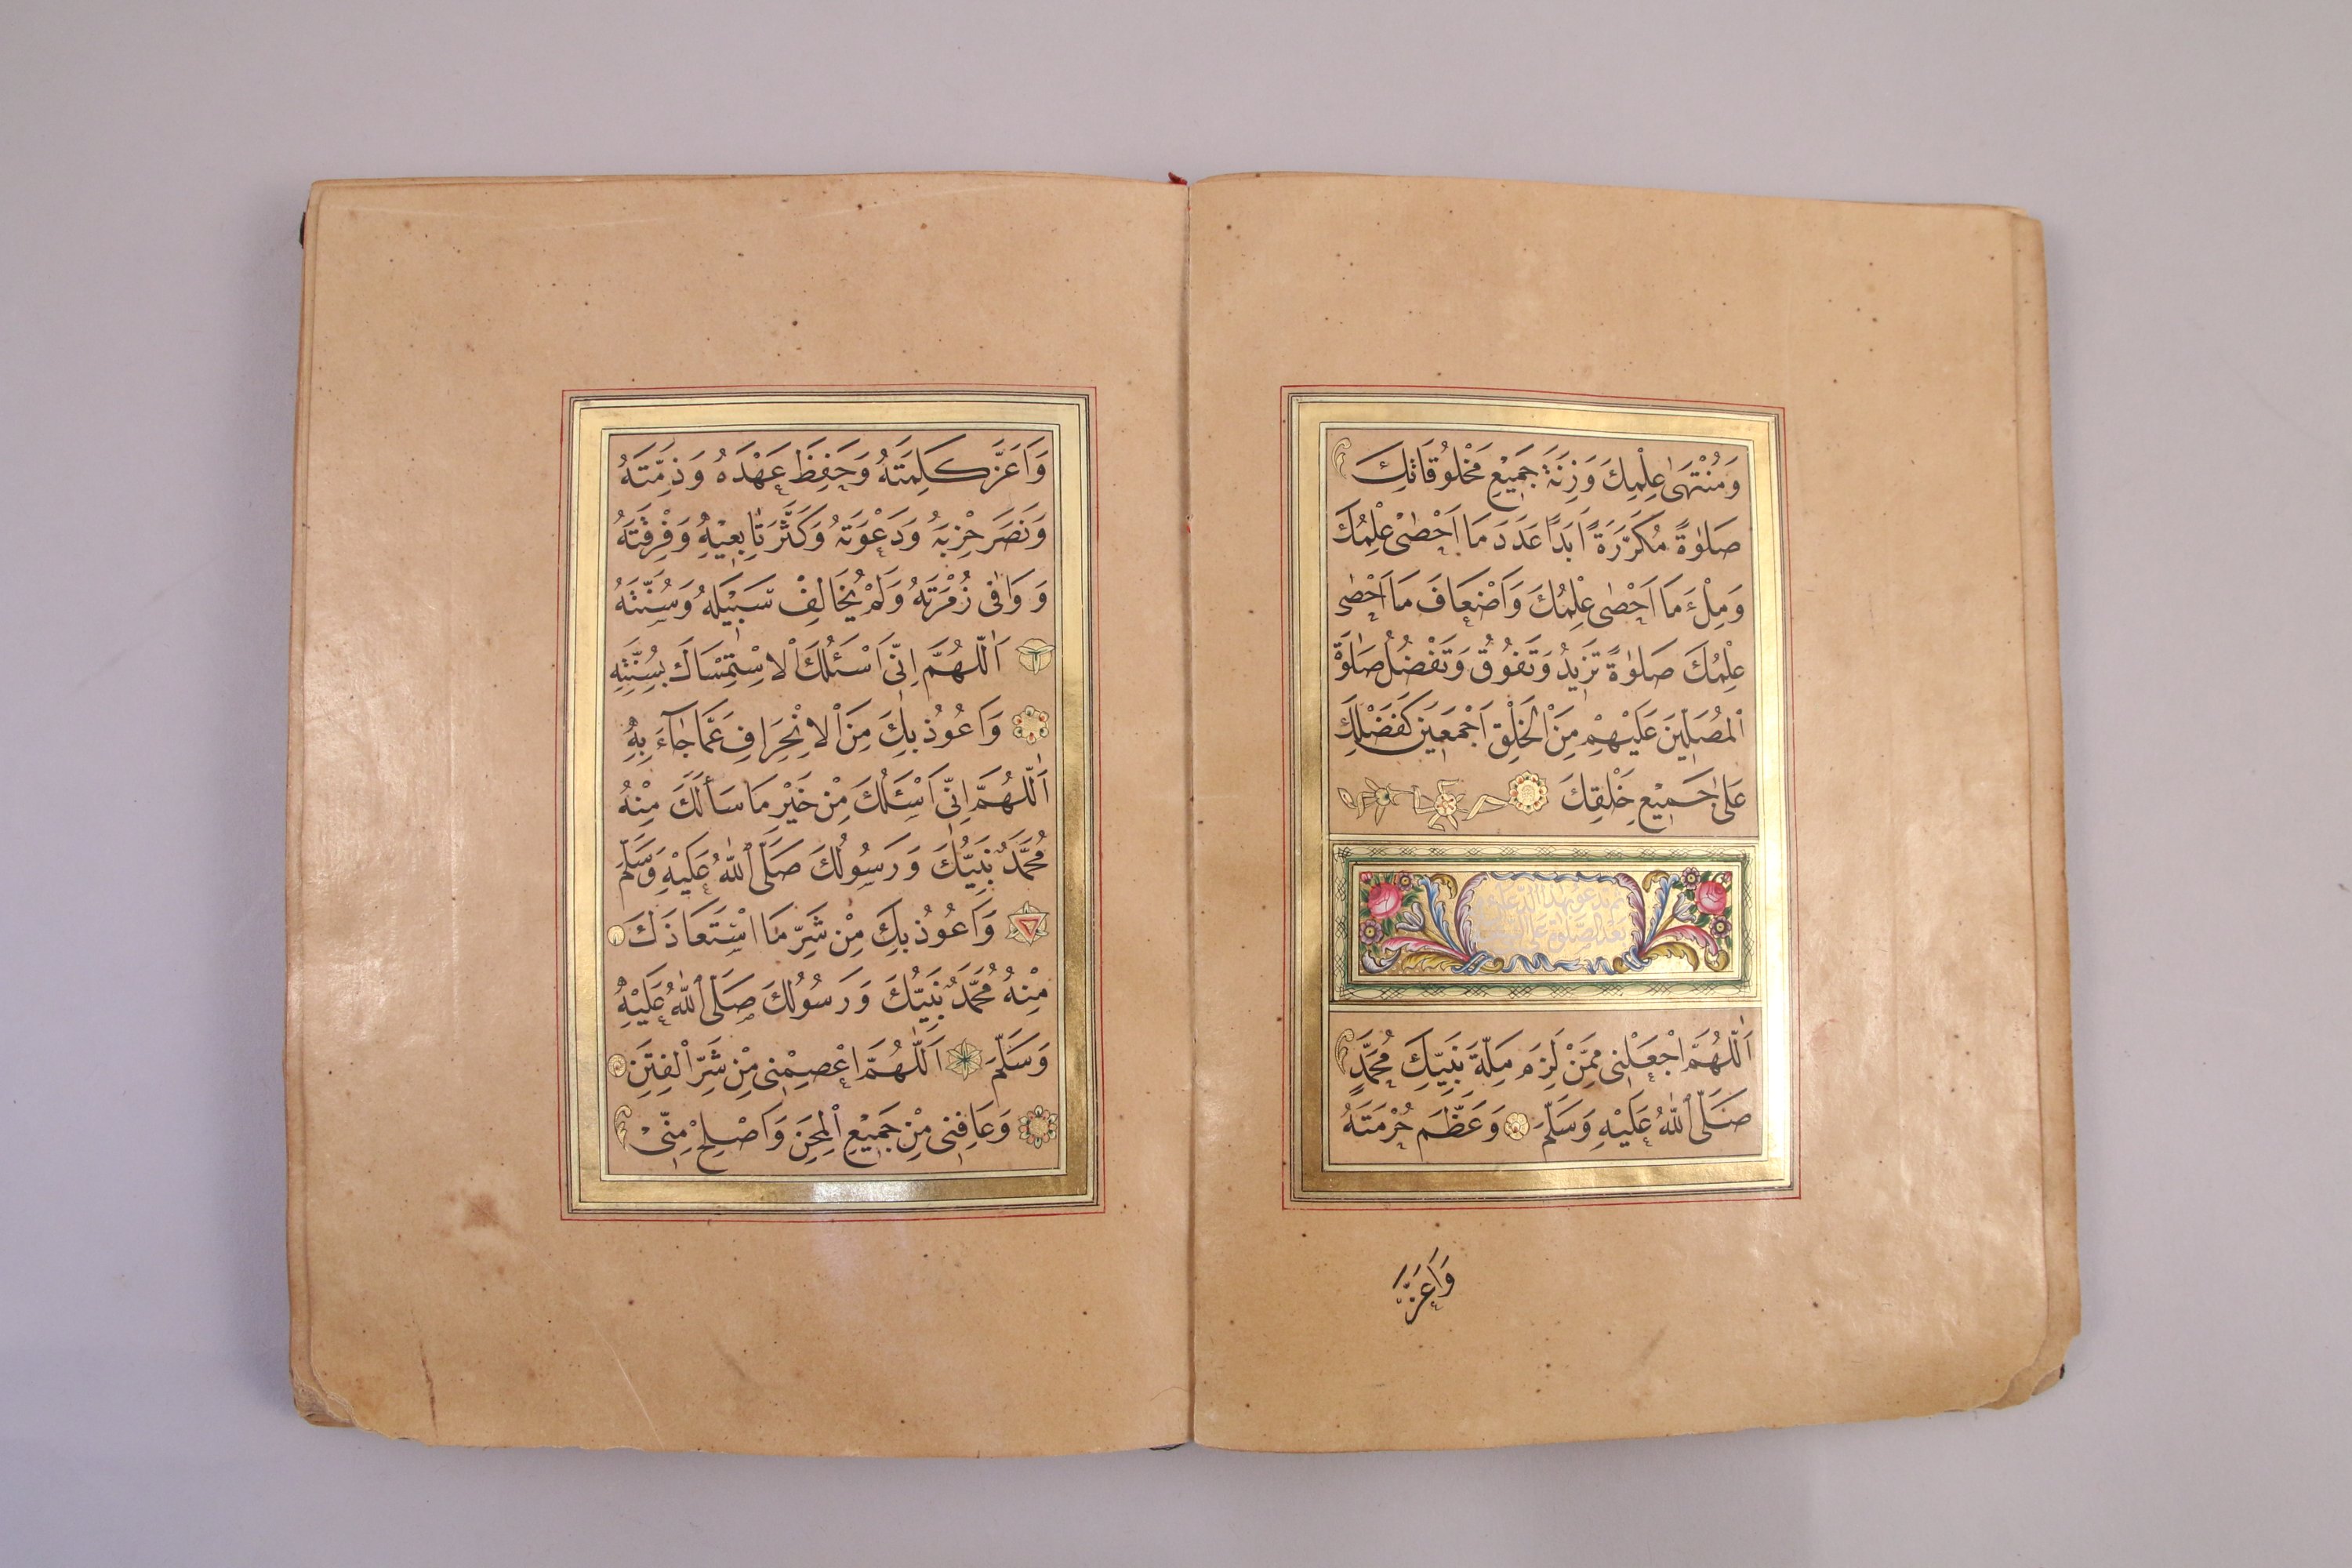 وَمُنْتَهٰى عِلْمِكَ وَزِنَةَ جَمِيْعِ مَخْلُوقَاتِكَ
صَلٰوةً مُكَرَّرَةً اَبَدًا عَدَدَ مَا اَحْصٰى عِلْمُكَ
وَمِلْءَ مَا اَحْصٰى عِلْمُكَ وَاَضْعَافَ مَا اَحْصٰى
عِلْمُكَ صَلٰوةً تَزِيدُ وَتَفُوقُ وَتَفْضُلُ صَلٰوةَ
الْمُصَلِّينَ عَلَيْهِمْ مِنَ الْخَلْقِ اَجْمَعِينَ كَفَضْلِكَ
عَلٰى جَمِيْعِ خَلْقِكَ
ثم يدعو بهذا الدعاء
بعد الصلوة على
اَللّٰهُمَّ اجْعَلْنِى مِمَّنْ لَزِمَ مِلَّةَ نَبِيِّكَ مُحَمَّدٍ
صَلَّى اللّٰهُ عَلَيْهِ وَسَلَّمَ وَعَظَّمَ حُرْمَتَهُ
وَاَعَزَّ
وَاَعَزَّ كَلِمَتَهُ وَحَفِظَ عَهْدَهُ وَذِمَّتَهُ
وَنَصَرَ حِزْبَهُ وَدَعْوَتَهُ وَكَثَّرَ تَابِعِيْهِ وَفِرْقَتَهُ
وَوَافٰى زُمْرَتَهُ وَلَمْ يُخَالِفْ سَبِيْلَهُ وَسُنَّتَهُ
اَللّٰهُمَّ اِنِّى اَسْئَلُكَ الْاِسْتِمْسَاكَ بِسُنَّتِهِ
وَاَعُوذُ بِكَ مِنَ الْاِنْحِرَافِ عَمَّا جَآءَ بِهِ
اَللّٰهُمَّ اِنِّى اَسْئَلُكَ مِنْ خَيْرِ مَا سَأَلَكَ مِنْهُ
مُحَمَّدٌ نَبِيُّكَ وَرَسُولُكَ صَلَّى اللّٰهُ عَلَيْهِ وَسَلَّمَ
وَاَعُوذُ بِكَ مِنْ شَرِّ مَا اسْتَعَاذَكَ
مِنْهُ مُحَمَّدٌ نَبِيُّكَ وَرَسُولُكَ صَلَّى اللّٰهُ عَلَيْهِ
وَسَلَّمَ اَللّٰهُمَّ اعْصِمْنِى مِنْ شَرِّ الْفِتَنِ
وَعَافِنِى مِنْ جَمِيْعِ الْمِحَنِ وَاَصْلِحْ مِنِّىْ